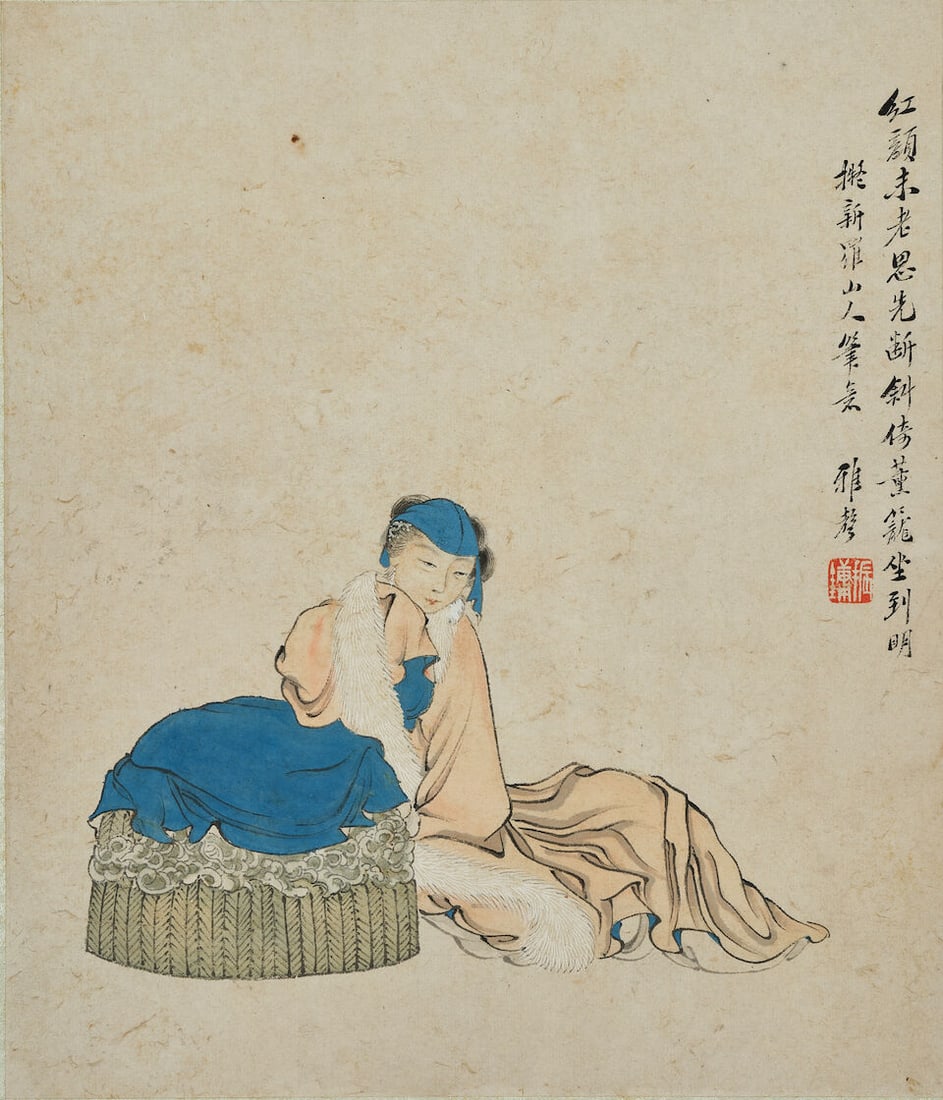 紅顏未老恩先斷斜倚薰籠坐到明
擬新羅山人筆意 雅聲